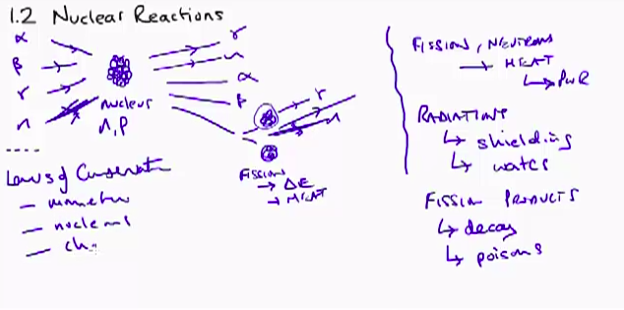 1.2 Nuclear Reactions
α
β
γ
n
nucleus
n, p
γ
n
α
β
γ
n
Fission
→ ΔE
→ HEAT
Laws of
–
– nucleons
– ch
FISSION, NEUTRONS
→ HEAT
↳ PWR
RADIATIONS
↳ shielding
↳ water
FISSION PRODUCTS
↳ decay
↳ poisons